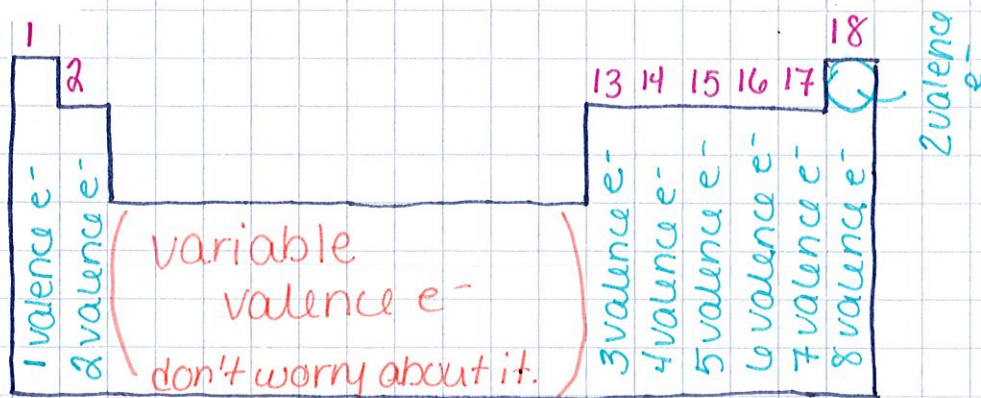 1
18
2
13 14 15 16 17
2 valence e⁻
1 valence e⁻
2 valence e⁻
variable
valence e⁻
don't worry about it.
3 valence e⁻
4 valence e⁻
5 valence e⁻
6 valence e⁻
7 valence e⁻
8 valence e⁻